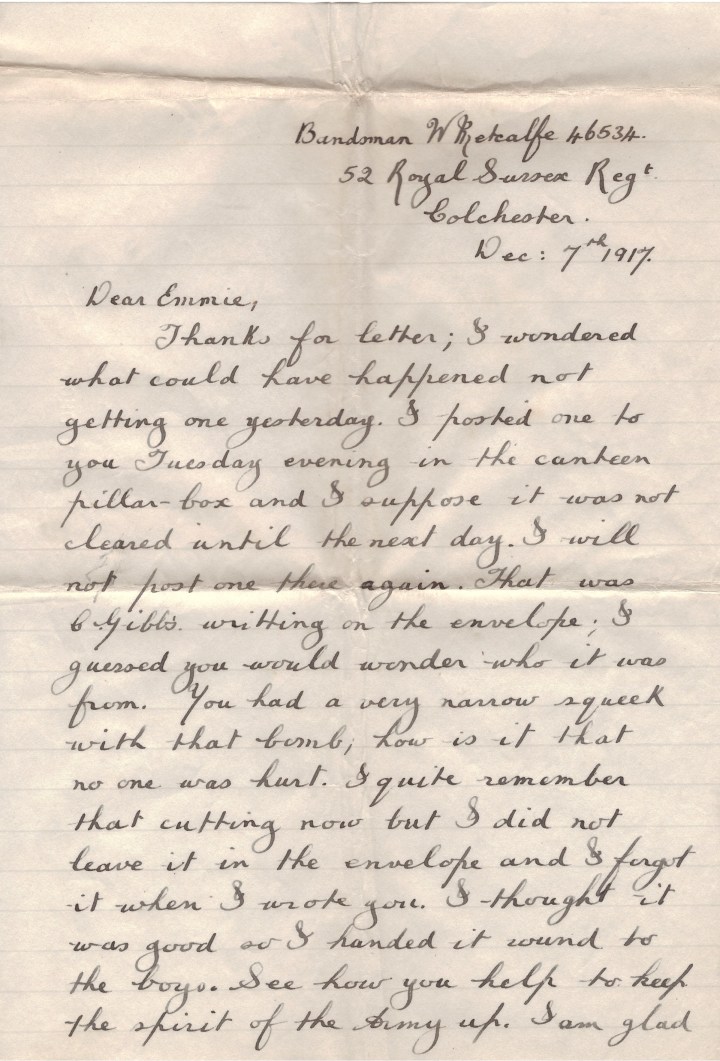 Bandsman W Metcalfe 46534.
52 Royal Sussex Regt.
Colchester.
Dec: 7th 1917.
Dear Emmie,
Thanks for letter; I wondered
what could have happened not
getting one yesterday. I posted one to
you Tuesday evening in the canteen
pillar-box and I suppose it was not
cleared until the next day. I will
not post one there again. That was
C Gibbs. writting on the envelope; I
guessed you would wonder who it was
from. You had a very narrow squeek
with that bomb; how is it that
no one was hurt. I quite remember
that cutting now but I did not
leave it in the envelope and I forgot
it when I wrote you. I thought it
was good so I handed it round to
the boys. See how you help to keep
the spirit of the Army up. I am glad